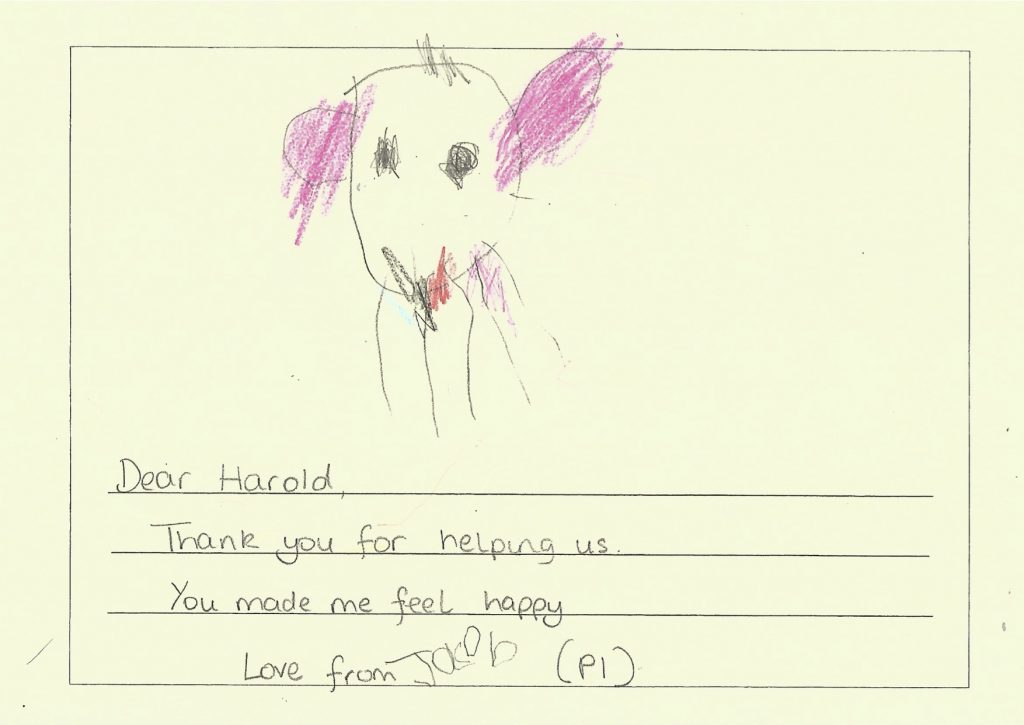 Dear Harold,
Thank you for helping us.
You made me feel happy
Love from Jacob (P1)